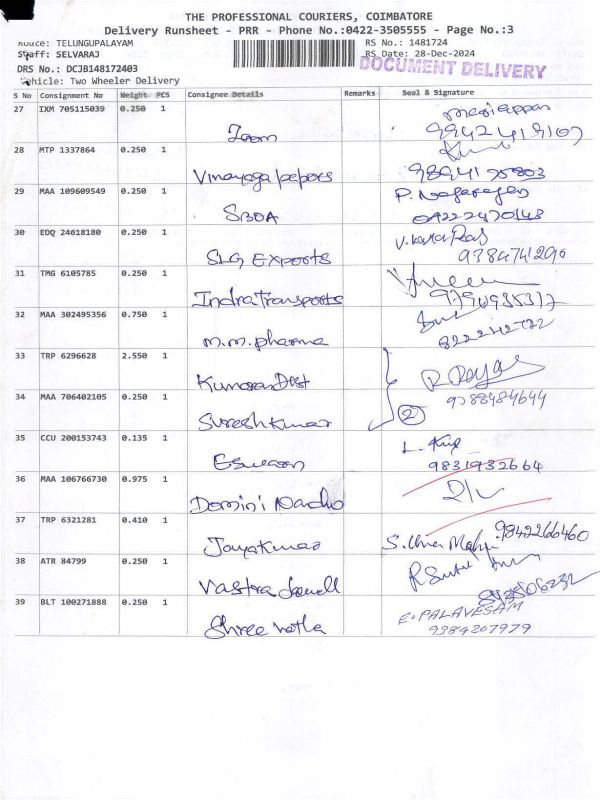 THE PROFESSIONAL COURIERS, COIMBATORE
Delivery Runsheet - PRR - Phone No.:0422-3505555 - Page No.:3
Route: TELUNGUPALAYAM
RS No.: 1481724
Staff: SELVARAJ
RS Date: 28-Dec-2024
DRS No.: DCJB148172403
DOCUMENT DELIVERY
Vehicle: Two Wheeler Delivery
S No Consignment No Weight PCS Consignee Details Remarks Seal & Signature
27 IXM 705115039 0.250 1
Zoom
28 MTP 1337864 0.250 1
Vinayaga papers
29 MAA 109609549 0.250 1
SBOA
30 EDQ 24618180 0.250 1
SLG Exports 9384741290
31 TMG 6105785 0.250 1
Indra Transports
32 MAA 302495356 0.750 1
m.m. pharma
33 TRP 6296628 2.550 1
Kumaran Dist
34 MAA 706402105 0.250 1 9788484644
Suresh Kumar 2
35 CCU 200153743 0.135 1
Eswaran 9831932664
36 MAA 106766730 0.975 1
Domini
37 TRP 6321281 0.410 1 9842266460
Jayakumar
38 ATR 84799 0.250 1
Vastra
39 BLT 100271888 0.250 1 E. PALAVESAM
Shree 9384207979